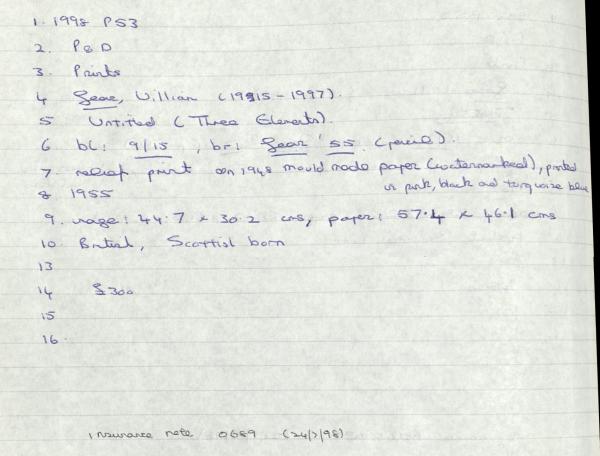 1. 1998 PS3
2. P&D
3. Prints
4 Gear, William (1915-1997).
5 Untitled (Three Elements).
6 bl: 9/15, br: Gear '55 (pencil).
7. relief print on 1948 mould made paper (watermarked), printed
in pink, black and turquoise blue
8 1955
9. image: 44.7 x 30.2 cms, paper: 57.4 x 46.1 cms
10. British, Scottish born
13
14 £300
15
16.
insurance note 0689 (24/7/98)